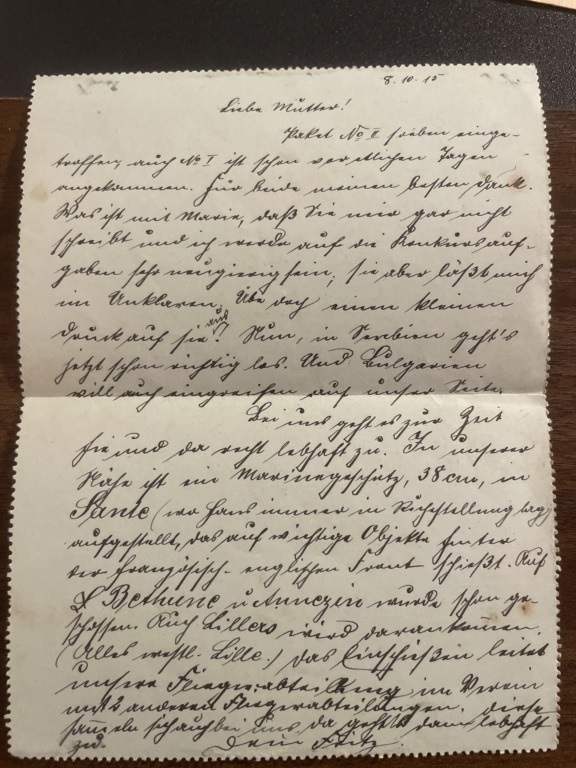 8.10.15
Liebe Mutter!
Paket No II soeben einge-
troffen, auch No I ist schon vor etlichen Tagen
angekommen. Für beide meinen besten Dank.
Was ist mit Marie, daß sie mir gar nicht
schreibt und ich werde auf die Konkursauf-
gaben sehr neugierig sein; sie aber läßt mich
im Unklaren. Übe doch einen kleinen
Druck auf sie aus! Nun, in Serbien geht's
jetzt schon richtig los. Und Bulgarien
will auch eingreifen auf unsrer Seite.
Bei uns geht es zur Zeit
hie und da recht lebhaft zu. In unserer
Nähe ist ein Marinegeschütz, 38 cm, in
(wo Hans immer in Ruhestellung lag)
aufgestellt, das auf wichtige Objekte hinter
der französisch-englischen Front schießt. Auf
Bethune u. Annezin wurde schon ge-
schossen. Auch Lillers wird darankommen.
(Alles westl. Lille.) Das Einschießen leitet
unsere Fliegerabteilung im Verein
mit 2 anderen Fliegerabteilungen. Diese
sammeln sich auch bei uns, da geht's dann lebhaft
zu. Dein Fritz.